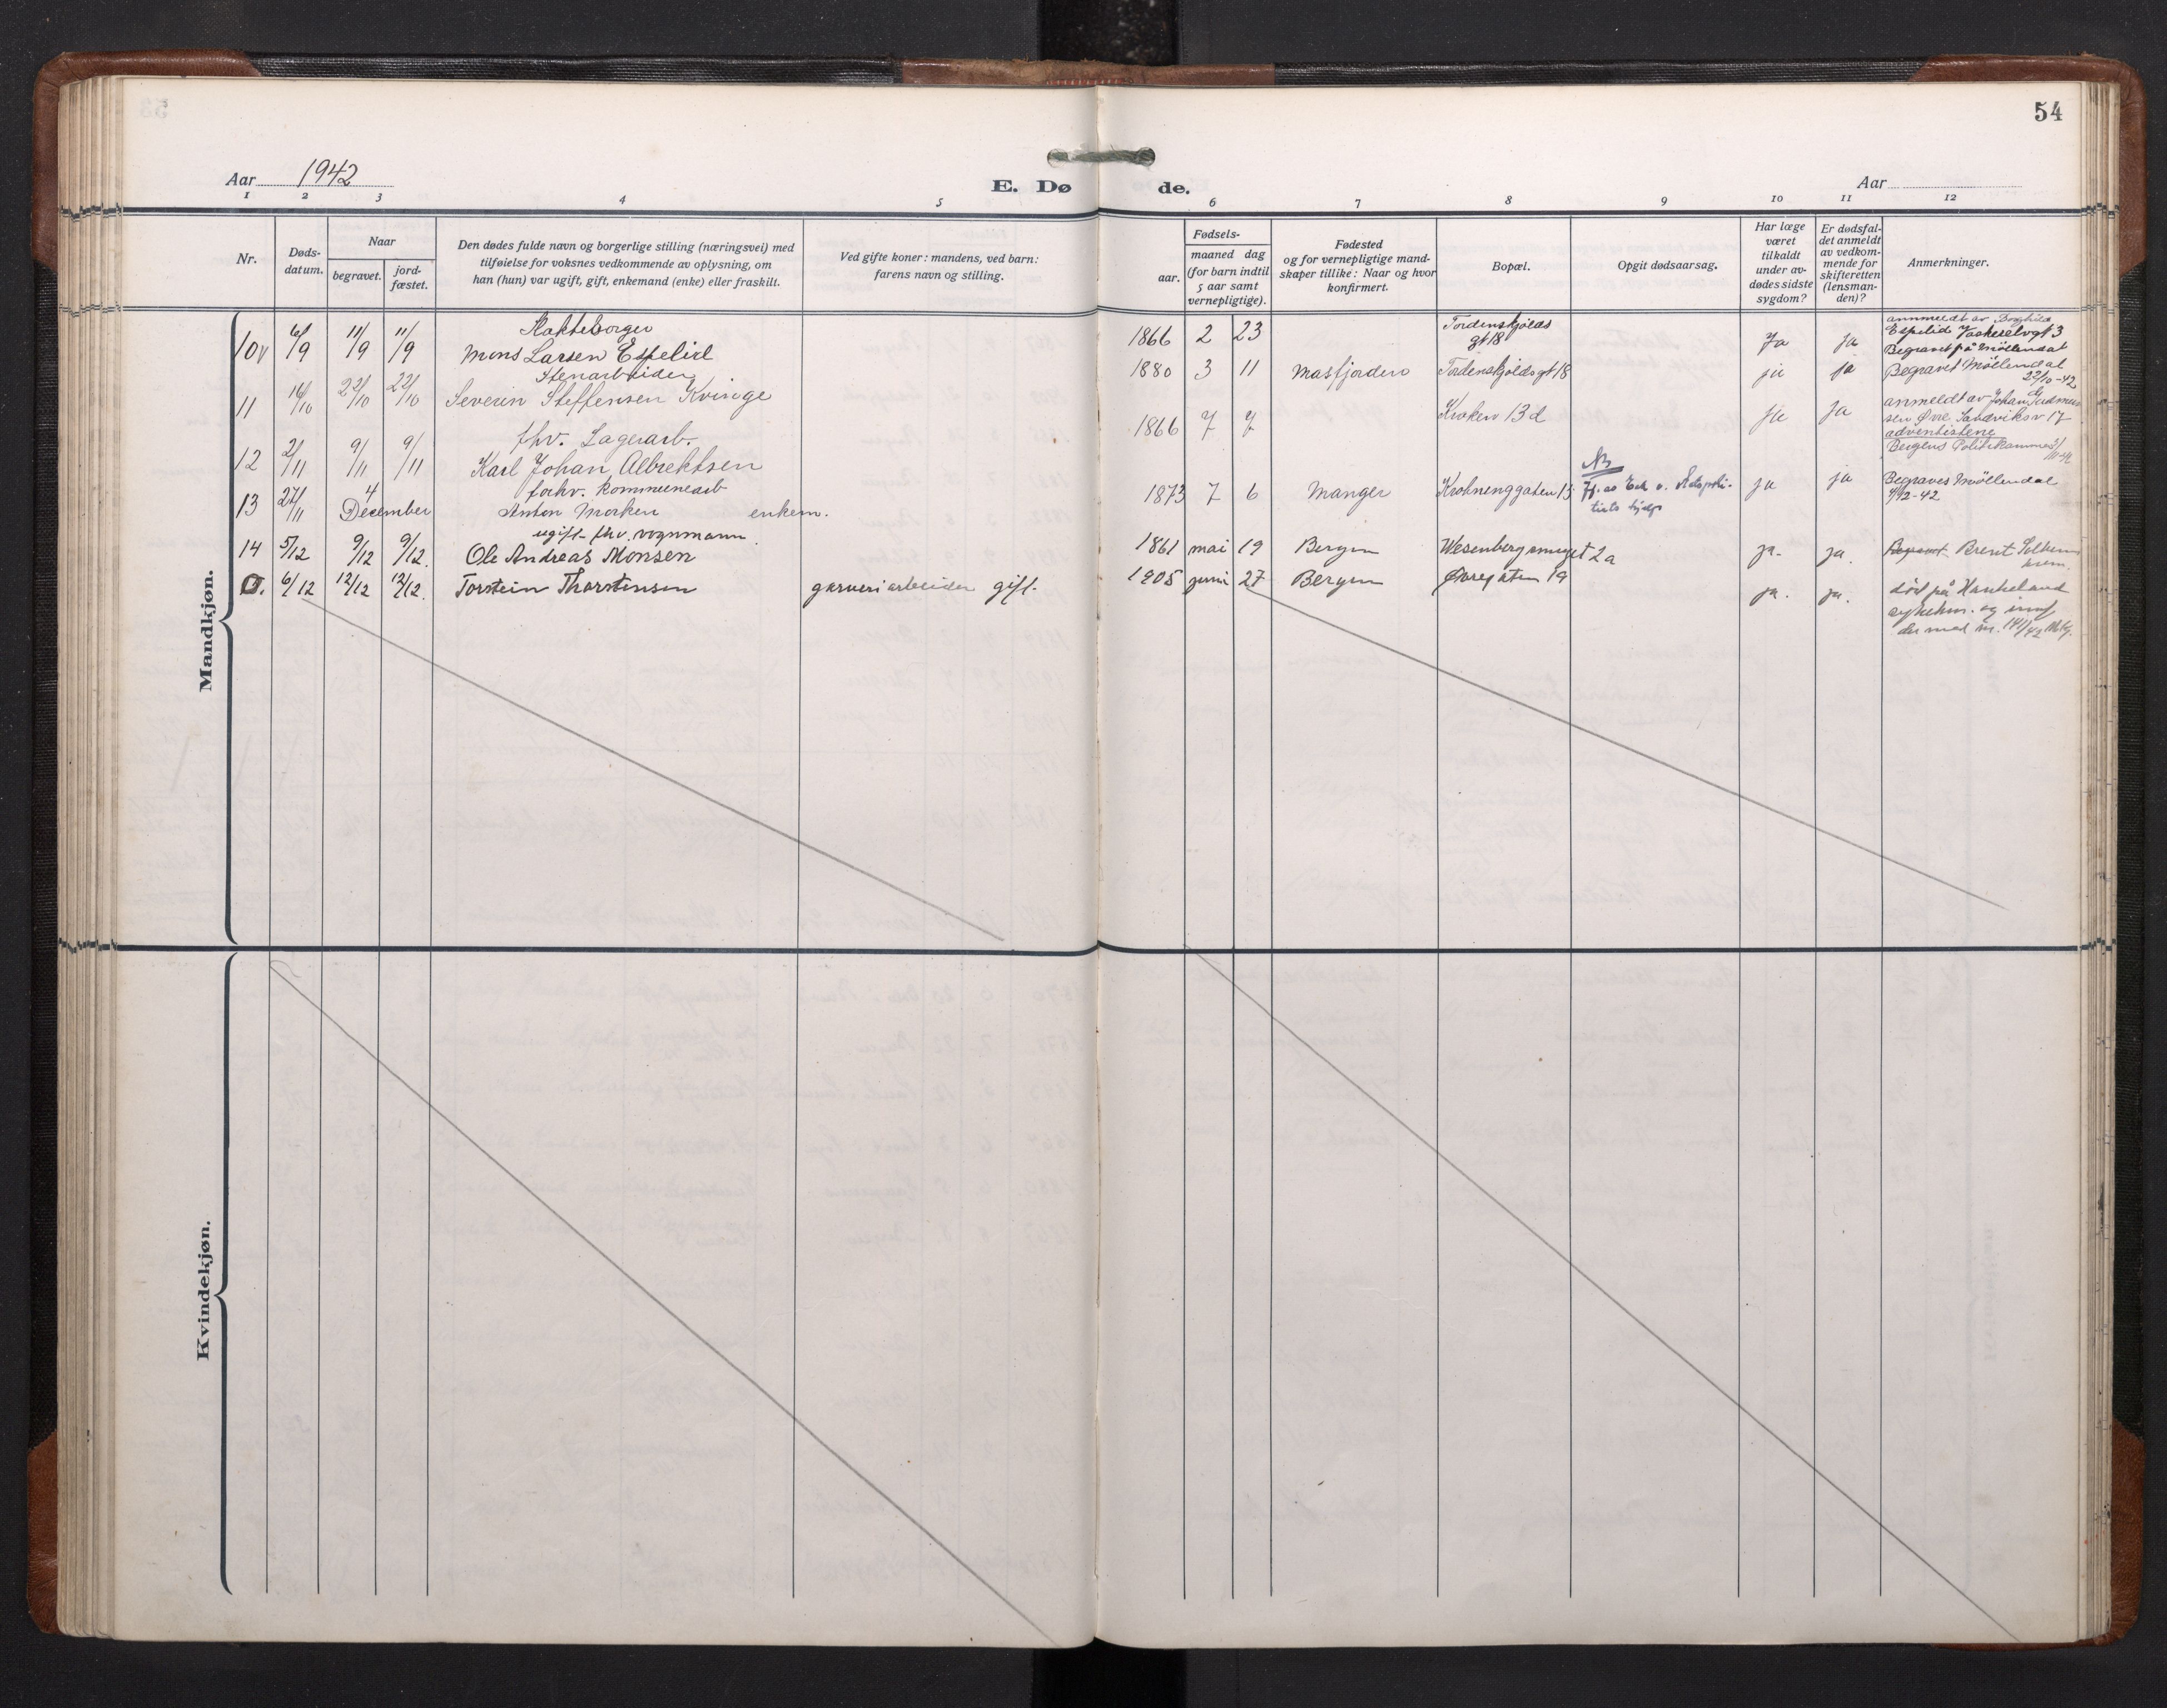 54
Aar 1942
E. Dø de.
Aar
1 2 3 4 5 6 7 8 9 10 11 12
Nr.
Døds-
datum.
Naar
begravet.
jord-
fæstet.
Den dødes fulde navn og borgerlige stilling (næringsvei) med
tilføielse for voksnes vedkommende av oplysning, om
han (hun) var ugift, gift, enkemand (enke) eller fraskilt.
Ved gifte koner: mandens, ved barn:
farens navn og stilling.
Fødsels-
aar.
maaned dag
(for barn indtil
5 aar samt
vernepligtige).
Fødested
og for vernepligtige mand-
skaper tillike: Naar og hvor
konfirmert.
Bopæl.
Opgit dødsaarsag.
Har læge
været
tilkaldt
under av-
dødes sidste
sygdom?
Er dødsfal-
det anmeldt
av vedkom-
mende for
skifteretten
(lensman-
den)?
Anmerkninger.
Mandkjøn.
10 6/9 11/9 11/9
Mons Larsen Espelid
1866 2 23
Tordenskjolds
gt 18
Ja ja
anmeldt av Borghild
Espelid
Begravet på Möllendal
11 16/10 22/10 22/10
Stenarbeider
Severin Steffensen Kvinge
1880 3 11 Masfjorden Tordenskjoldsgt 18
ja ja
Begravet Möllendal
22/10-42
12 2/11 9/11 9/11
fhv. Lagerarb.
Karl Johan Albrektsen
1866 7 7
Kroken 13d
ja ja
anmeldt av Johan
Øvre Sandviksv 17
adventistene
Bergens Politikammer
13 27/11 4
December
forhv. kommunearb
Anton Morken enkem.
1873 7 6 Manger Krohnenggaten 13
NB
ja ja
Begraves Möllendal
4/12-42
14 5/12 9/12 9/12.
ugift fhv. vognmann.
Ole Andreas Monsen
1861 mai 19 Bergen Wesenbergsmuget 2a
ja. ja.
Begravet Brent Solheim
krem.
0. 6/12 12/12 12/12.
Torstein Thorstensen garveriarbeider gift.
1905 juni 27 Bergen Øvregaten 19
ja. ja.
död på Haukeland
sykehus. og innf.
der med nr. 141/42
Kvindekjøn.